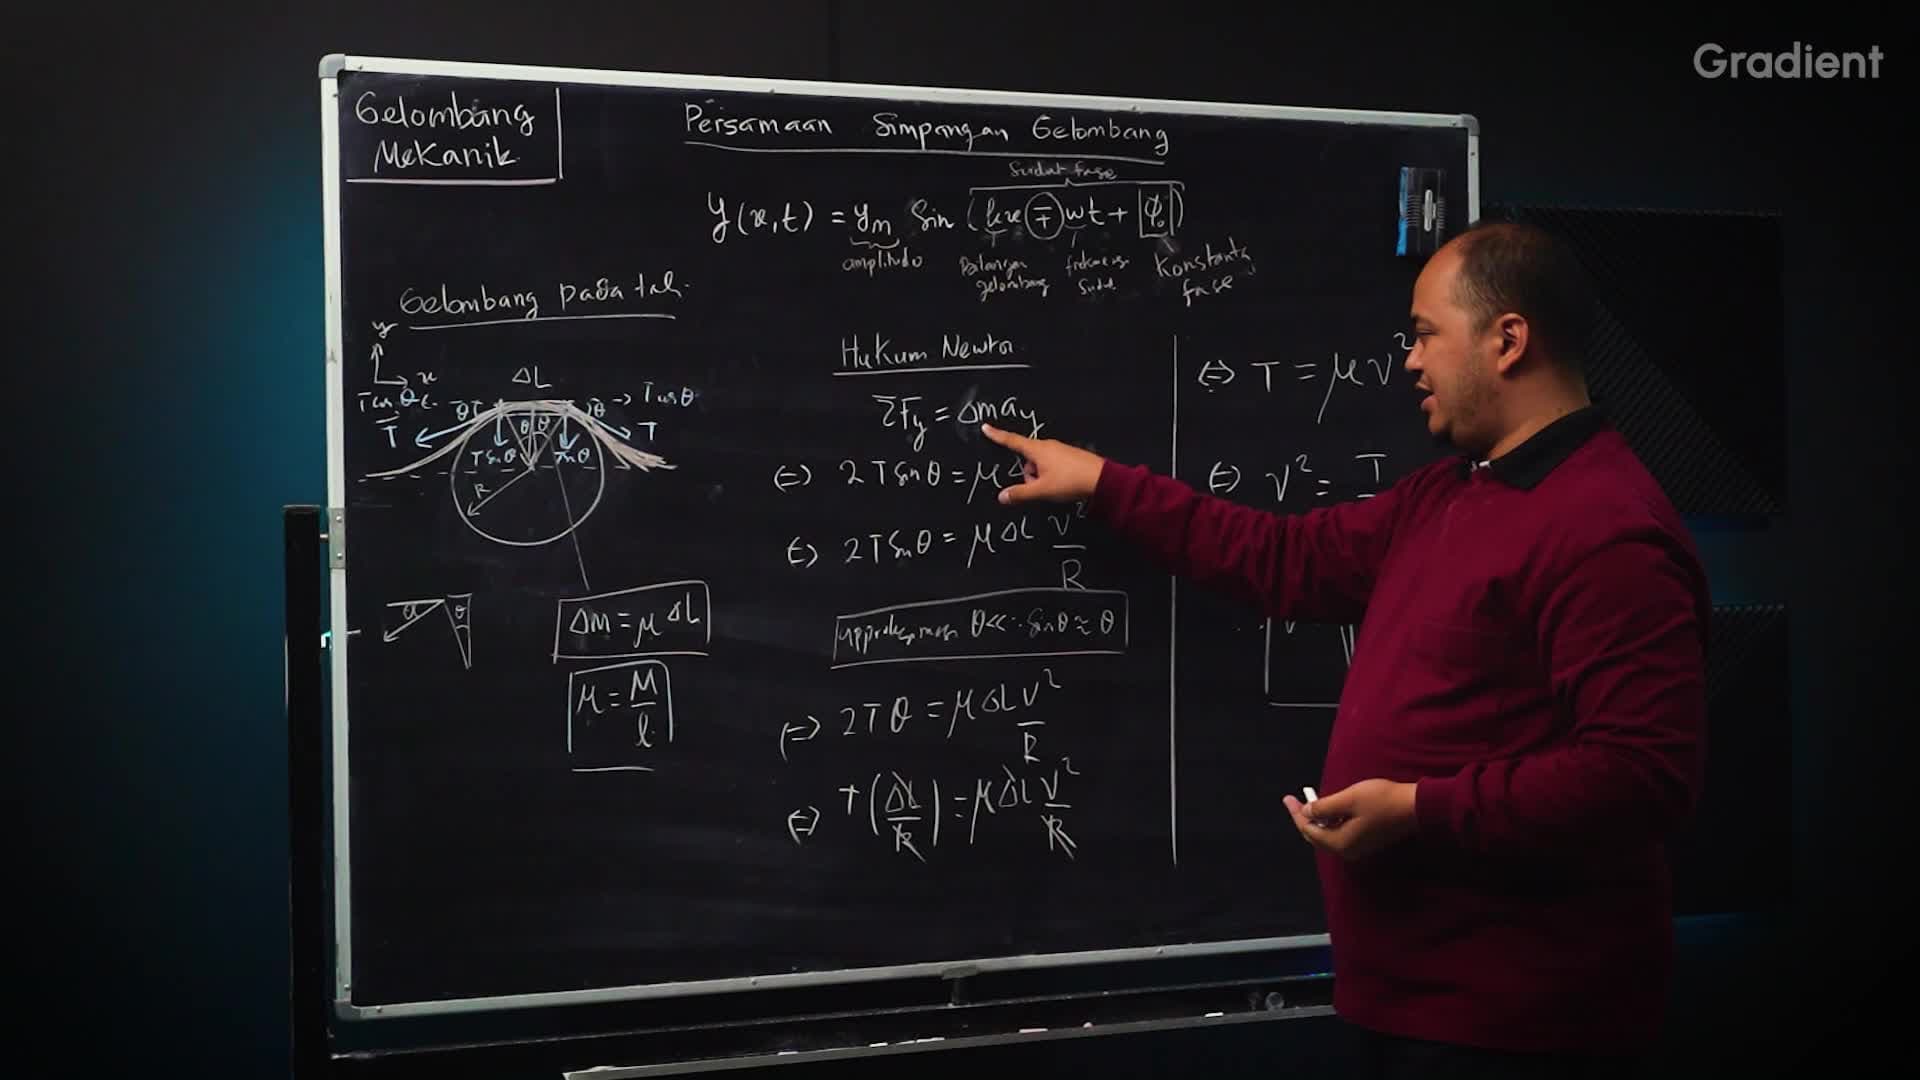 Gradient
Gelombang
Mekanik
Persamaan Simpangan Gelombang
Sudut fase
y(x,t) = ym sin (kx ∓ ωt + φ₀)
amplitudo
Bilangan gelombang
frekuensi sudut
Konstanta fase
Gelombang pada tali
y
x
ΔL
T cos θ
θ
θ
T cos θ
T
θ θ
T
T sin θ
T sin θ
R
θ
θ
Δm = μ ΔL
μ = M/l
Hukum Newton
ΣFy = Δm ay
⇔ 2T sin θ = μ Δ
⇔ 2T sin θ = μ ΔL v²/R
approksimasi θ<< ∴ sin θ ≈ θ
⇔ 2T θ = μ ΔL v²/R
⇔ T (ΔL/R) = μ ΔL v²/R
⇔ T = μ v²
⇔ v² = T
v